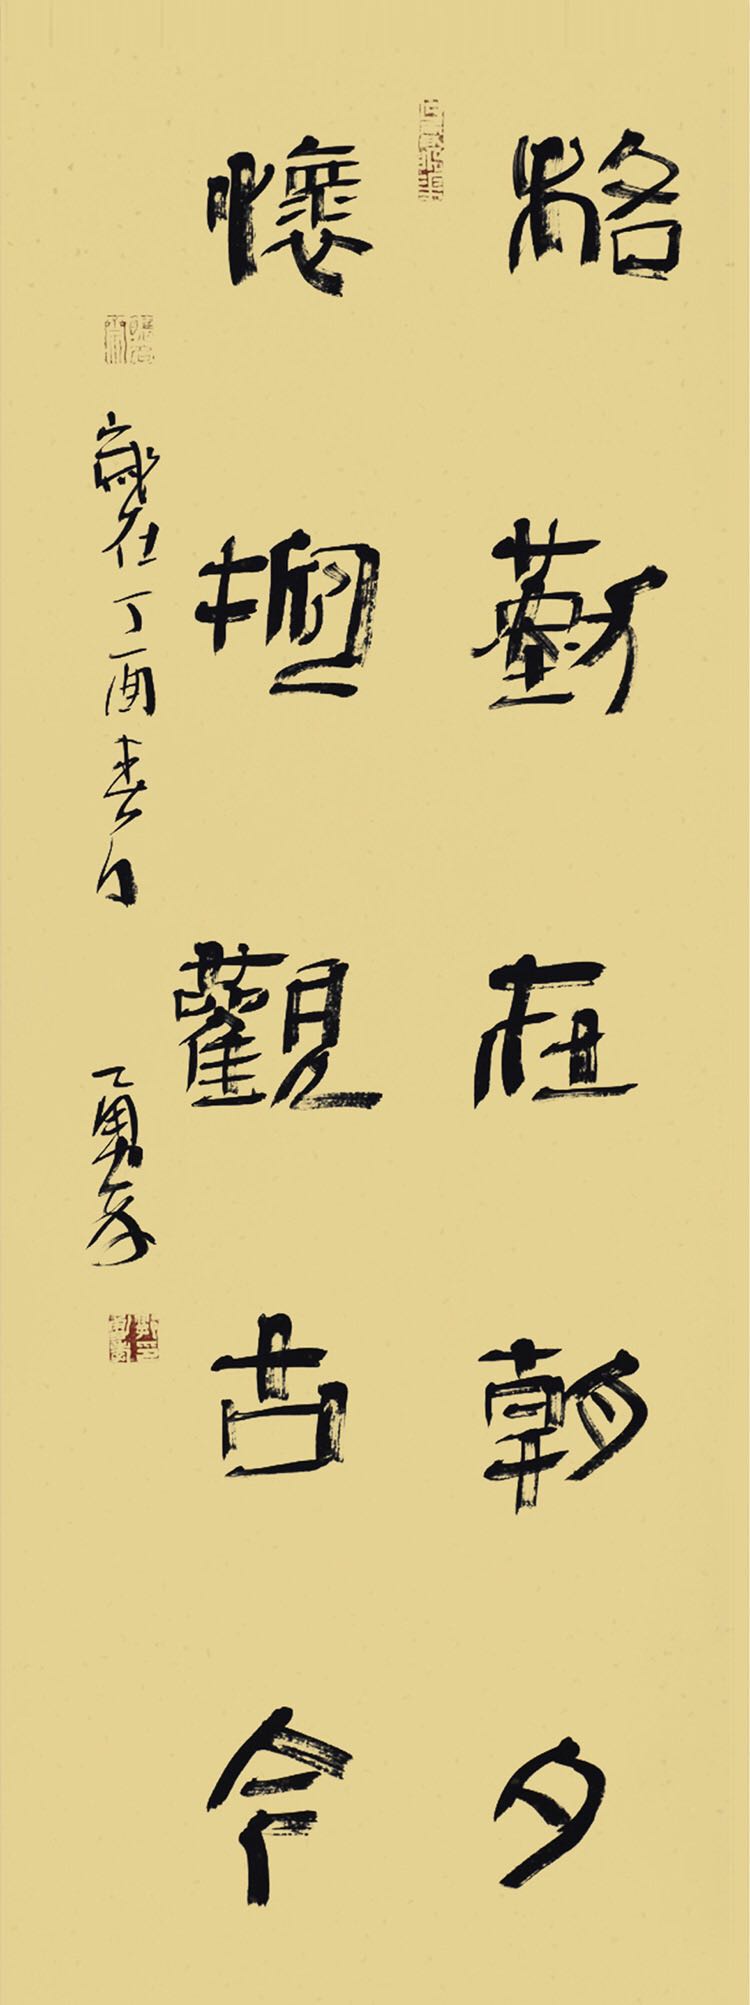 恪勤在朝夕
懷抱觀古今
歲在丁酉春日 勇